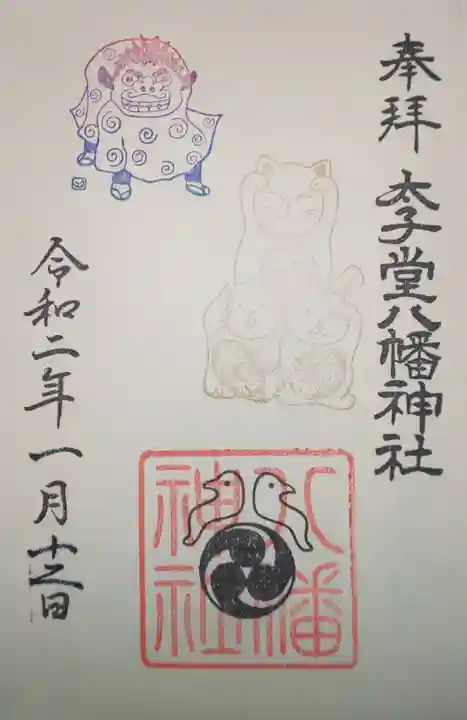 奉拝
太子堂八幡神社
八幡
神社
令和二年一月十二日